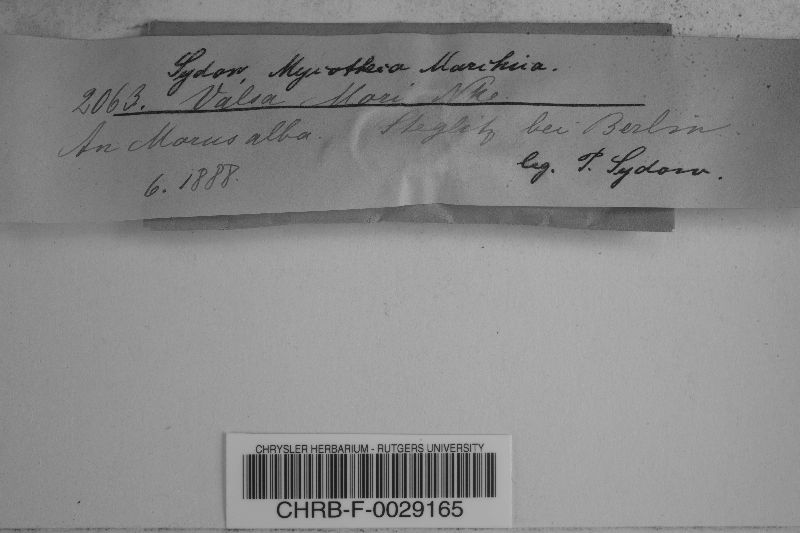 Sydow, Mycotheca Marchica.
2063. Valsa Mori Nke.
An Morus alba. Steglitz bei Berlin.
6. 1888. leg. P. Sydow.
CHRYSLER HERBARIUM - RUTGERS UNIVERSITY
CHRB-F-0029165